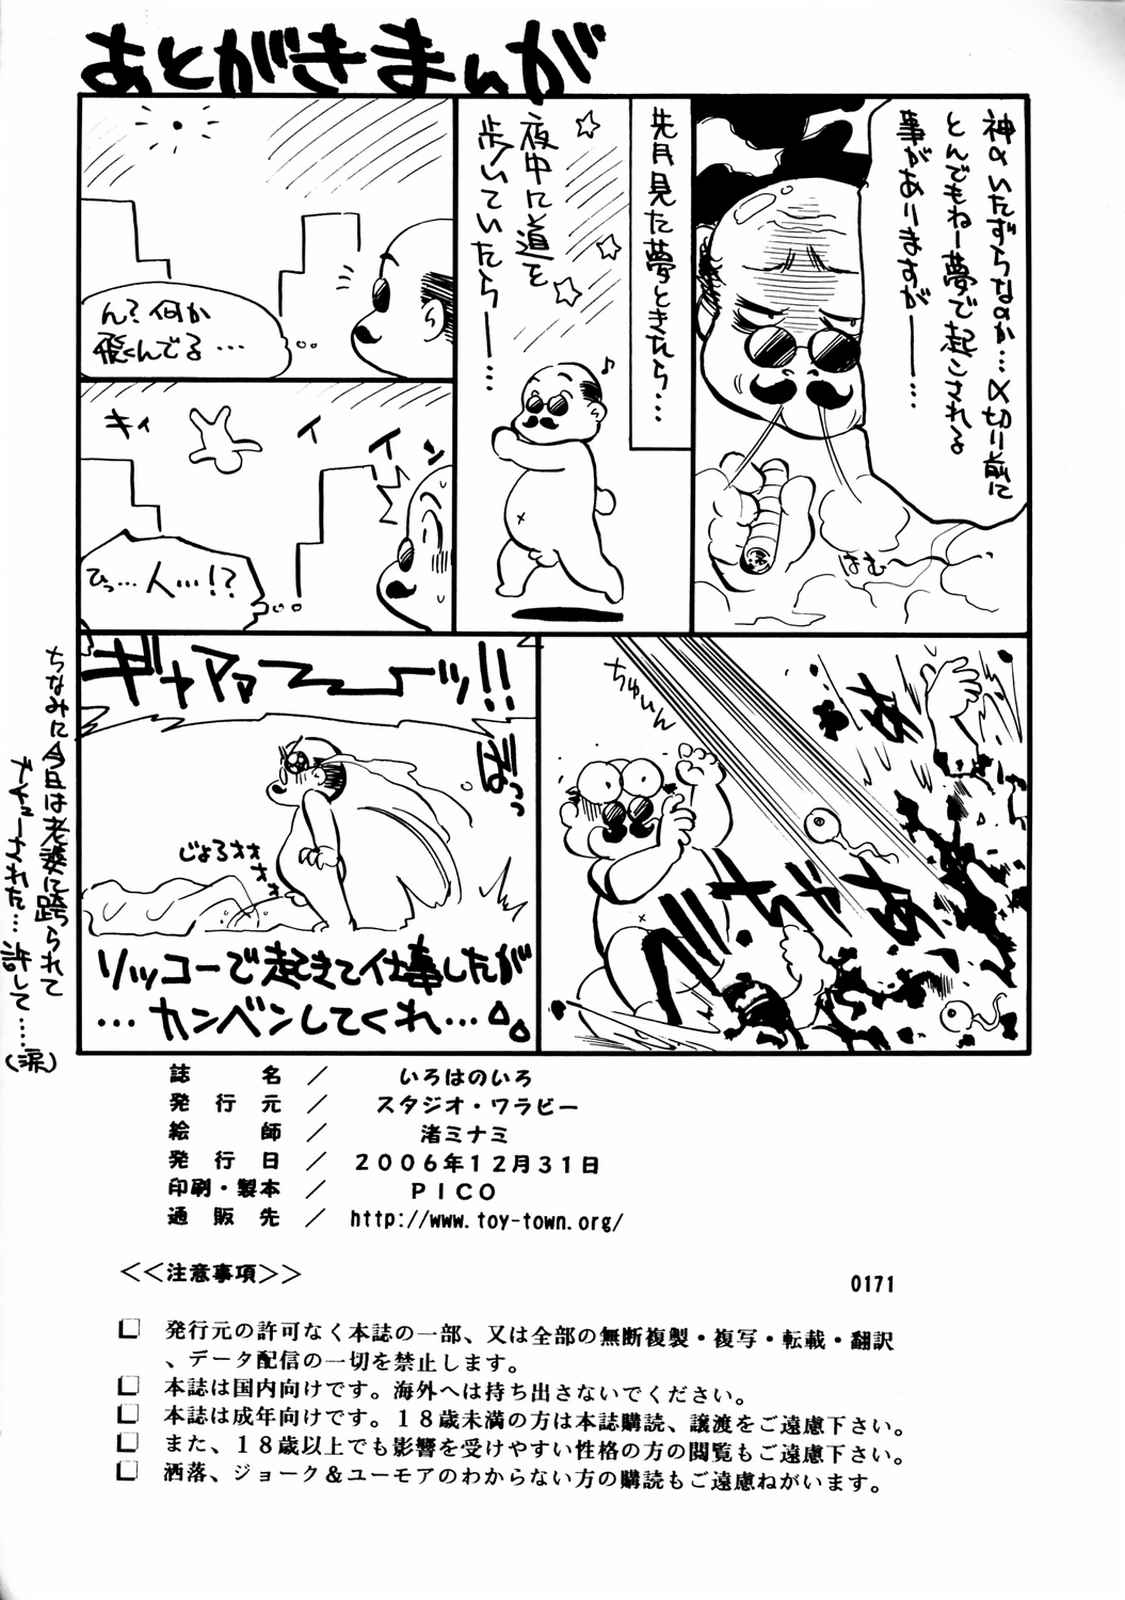 あとがきまんが
神のいたずらなのか…〆切り前に
とんでもねー夢で起こされる
事がありますが――…
はむ
先月見た夢ときたら…
夜中に道を
歩いていたら――…
ん？何か
飛んでる…
キィ
イ
イン
ひっ…人…!?
ちゅいん
ああ
ギャアアァーーッ!!
じょろォォ
ォォ
リッコーで起きて仕事したが
…カンベンしてくれ…
ちなみに今日は老婆に跨られて
許して…
(涙)
誌名／いろはのいろ
発行元／スタジオ・ワラビー
絵師／渚ミナミ
発行日／２００６年１２月３１日
印刷・製本／ＰＩＣＯ
通販先／http://www.toy-town.org/
＜＜注意事項＞＞
0171
□ 発行元の許可なく本誌の一部、又は全部の無断複製・複写・転載・翻訳
、データ配信の一切を禁止します。
□ 本誌は国内向けです。海外へは持ち出さないでください。
□ 本誌は成年向けです。１８歳未満の方は本誌購読、譲渡をご遠慮下さい。
□ また、１８歳以上でも影響を受けやすい性格の方の閲覧もご遠慮下さい。
□ 洒落、ジョーク＆ユーモアのわからない方の購読もご遠慮ねがいます。